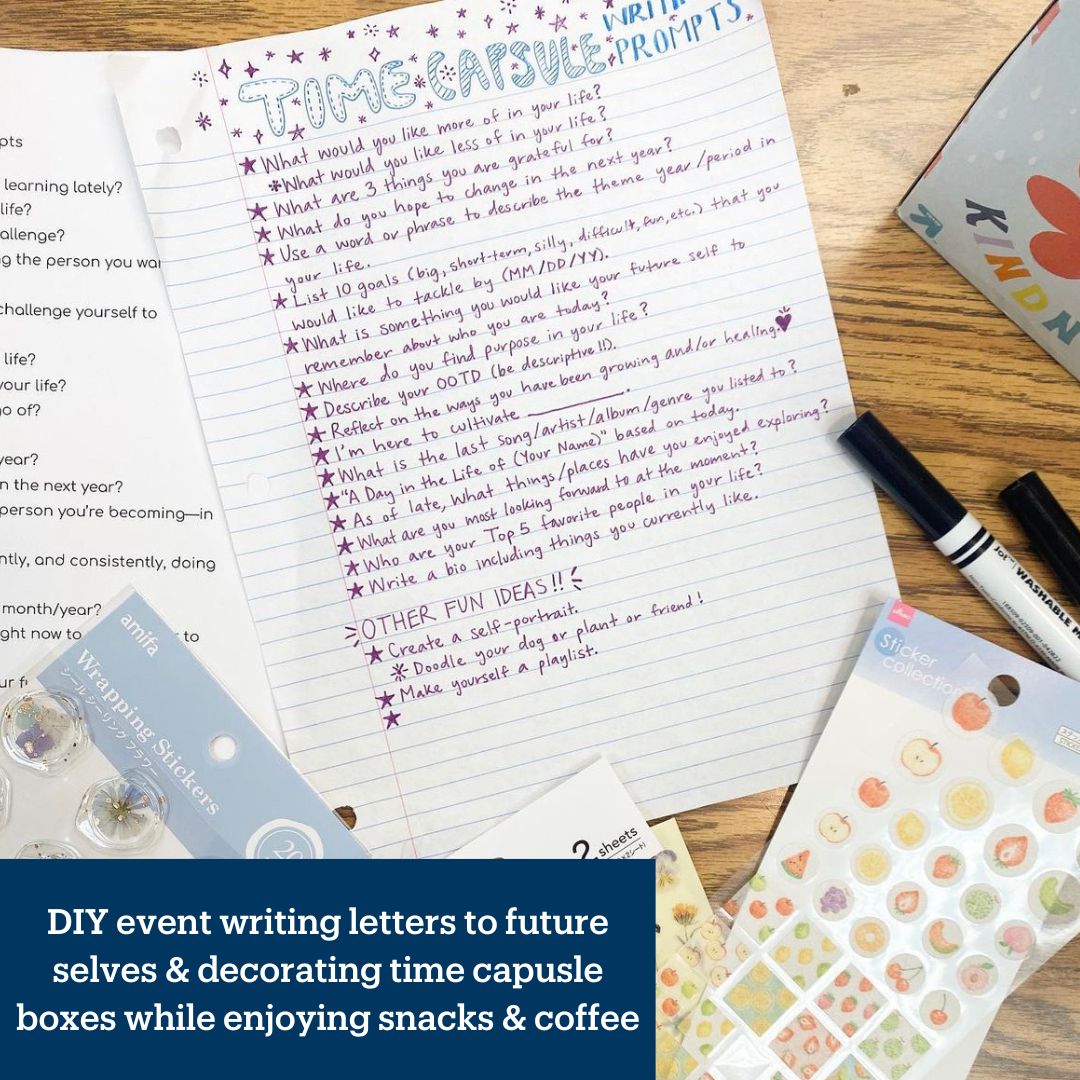 TIME CAPSULE WRITING
PROMPTS
★ What would you like more of in your life?
*What would you like less of in your life?
★ What are 3 things you are grateful for?
★ What do you hope to change in the next year?
★ Use a word or phrase to describe the theme year/period in
your life.
★ List 10 goals (big, short-term, silly, difficult, fun, etc.) that you
would like to tackle by (MM/DD/YY).
★ What is something you would like your future self to
remember about who you are today?
★ Where do you find purpose in your life?
★ Describe your OOTD (be descriptive!!).
★ Reflect on the ways you have been growing and/or healing.
★ I'm here to cultivate ________.
★ What is the last song/artist/album/genre you listed to?
★ "A Day in the Life of (Your Name)" based on today.
★ As of late, what things/places have you enjoyed exploring?
★ What are you most looking forward to at the moment?
★ Who are your Top 5 favorite people in your life?
★ Write a bio including things you currently like.
OTHER FUN IDEAS!!
★ Create a self-portrait.
* Doodle your dog or plant or friend!
★ Make yourself a playlist.
★
pts
learning lately?
life?
allenge?
g the person you wa
challenge yourself to
life?
your life?
o of?
year?
n the next year?
person you're becoming—in
ntly, and consistently, doing
month/year?
ght now to
to
ur f
KINDN
Jot
WASHABLE
amifa
Wrapping Stickers
シールシーリングフラワー
20
2 sheets
Sticker
collection
DIY event writing letters to future
selves & decorating time capusle
boxes while enjoying snacks & coffee